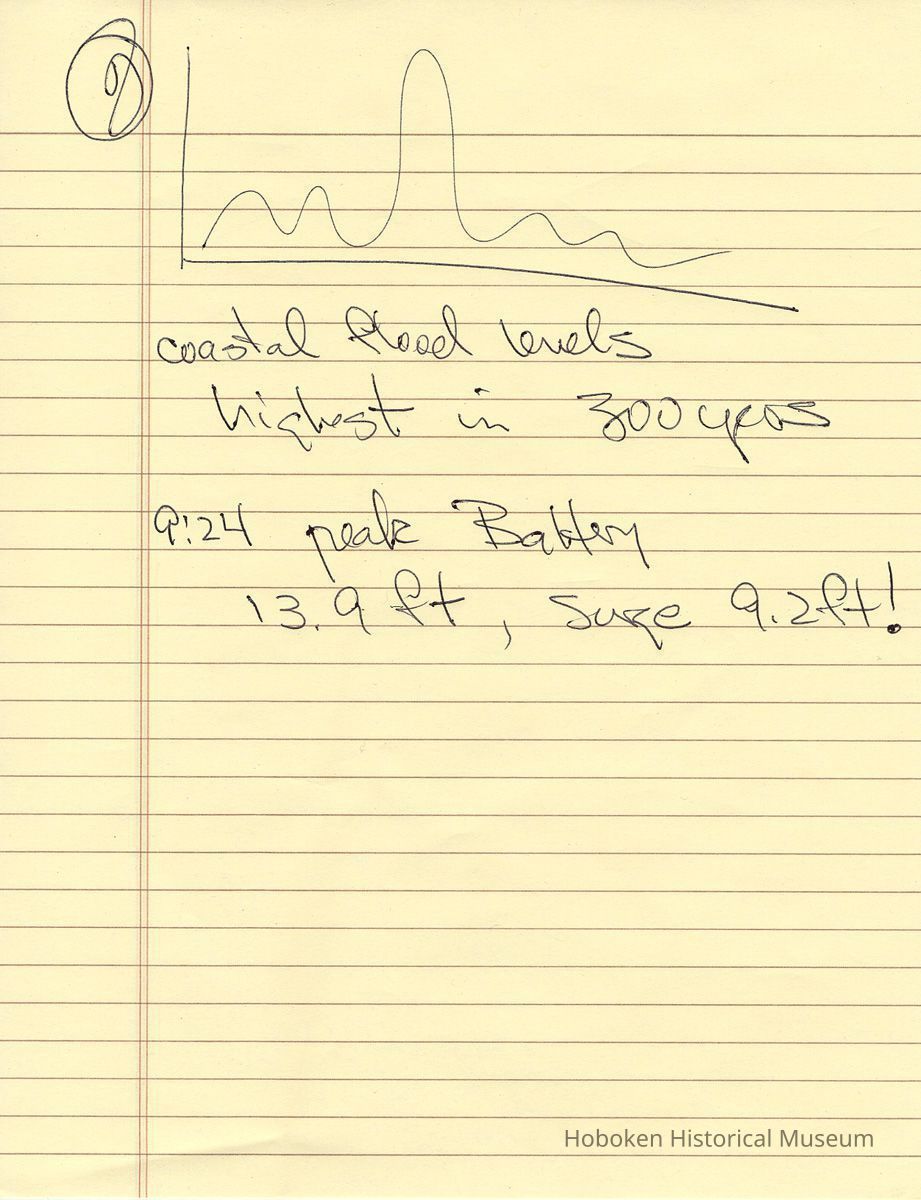 9
coastal flood levels
highest in 300 years
9:24 peak Battery
13.9 ft, surge 9.2ft!
Hoboken Historical Museum